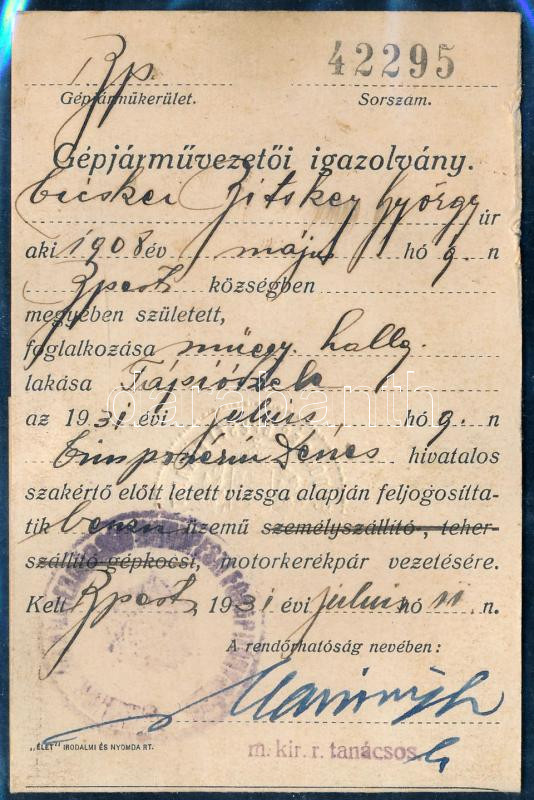 Bp. 42295
Gépjárműkerület. Sorszam.
Gépjárművezetői igazolvány.
bicskei Zitskey György úr
aki 1908 év május hó 9. n
Bpest községben
megyében született,
foglalkozása műegy. hallg.
lakása Tápiószele
az 1931 évi július hó 9. n
Dénes hivatalos
szakértő előtt letett vizsga alapján feljogosítta-
tik benzin üzemű személyszállító-, teher-
szállító gépkocsi, motorkerékpár vezetésére.
Kelt Bpest, 1931 évi július hó 11. n.
A rendőrhatóság nevében:
m. kir. r. tanácsos
„ÉLET" IRODALMI ÉS NYOMDA RT.
darabanth